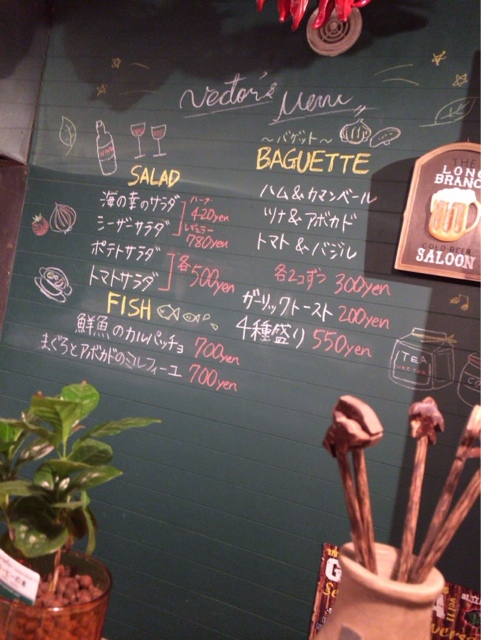 Vector's Menu
SALAD
海の幸のサラダ
シーザーサラダ
ハーフ
420yen
レギュラー
780yen
ポテトサラダ
トマトサラダ
各500yen
FISH
鮮魚のカルパッチョ 700yen
まぐろとアボカドのミルフィーユ 700yen
~バゲット~
BAGUETTE
ハム&カマンベール
ツナ&アボカド
トマト&バジル
各2コずつ 300yen
ガーリックトースト 200yen
4種盛り 550yen
THE
LONG
BRANCH
COLD BEER
SALOON
TEA